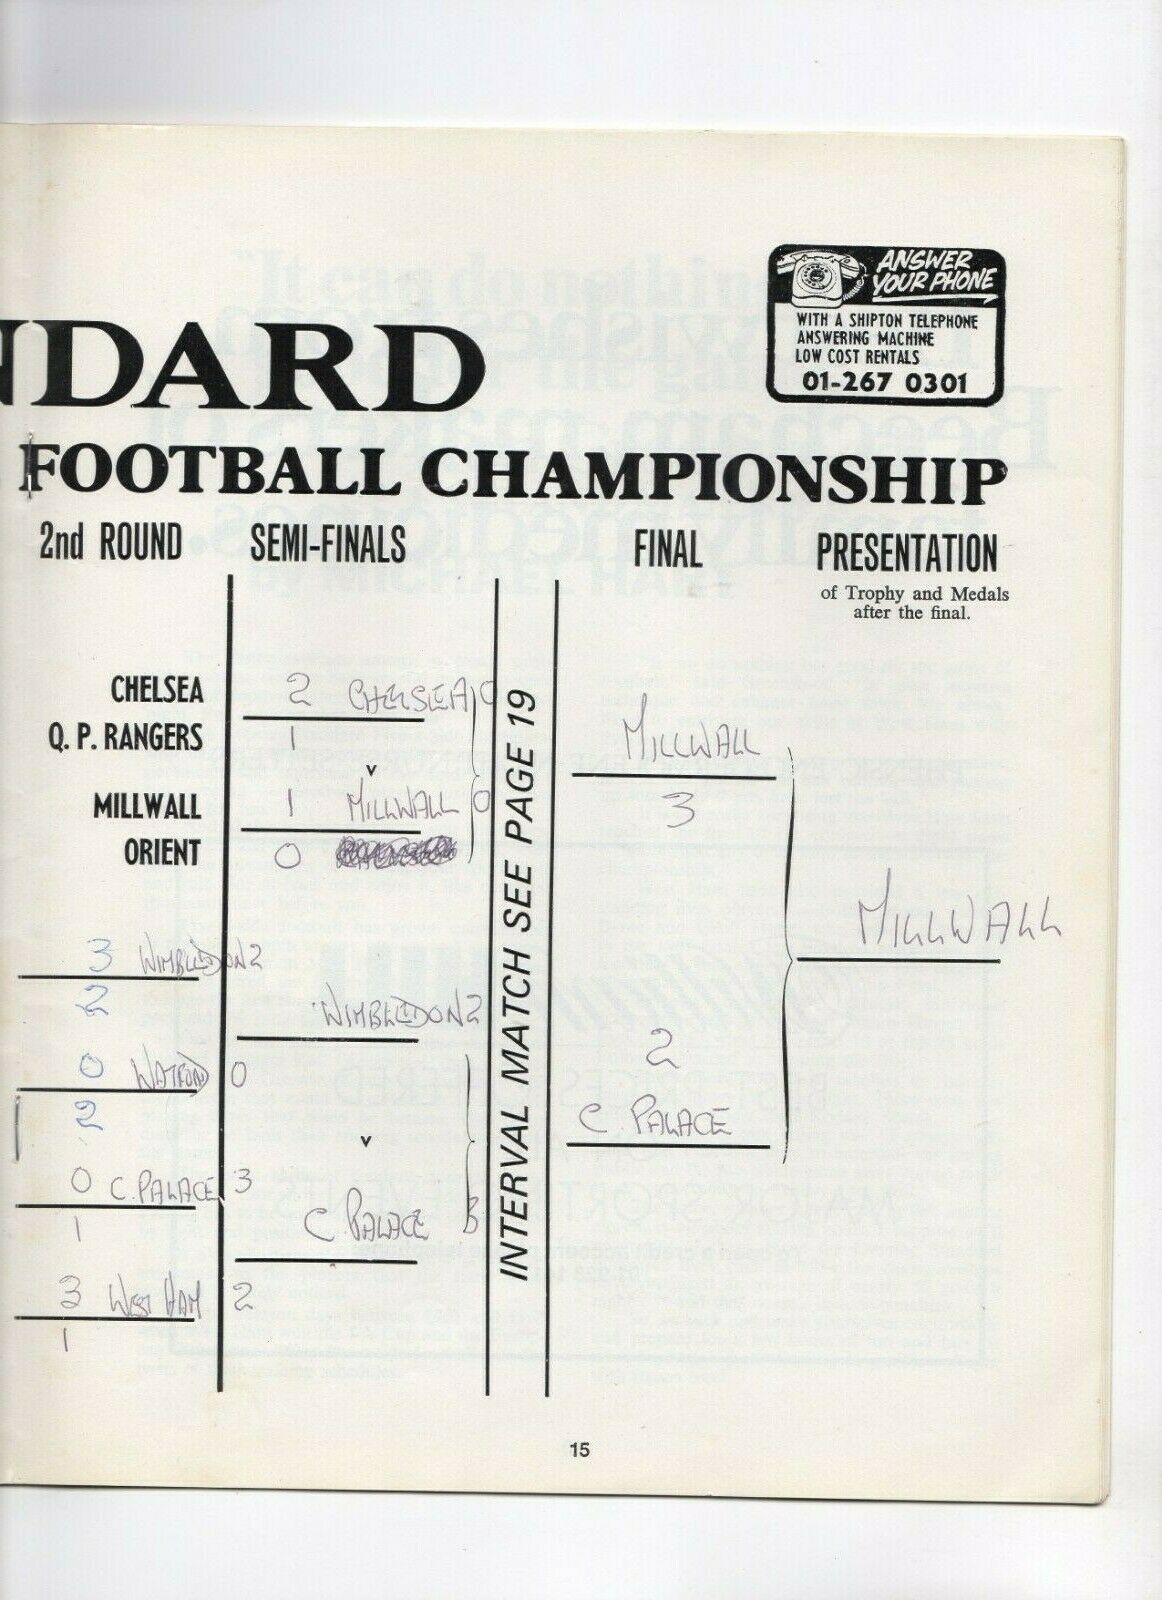 ANSWER
YOUR PHONE
WITH A SHIPTON TELEPHONE
ANSWERING MACHINE
LOW COST RENTALS
01-267 0301
NDARD
FOOTBALL CHAMPIONSHIP
2nd ROUND SEMI-FINALS FINAL PRESENTATION
of Trophy and Medals
after the final.
CHELSEA 2 CHELSEA 0
Q. P. RANGERS 1
v
MILLWALL 1 MILLWALL 0
ORIENT 0
3 WIMBLEDON 2
2
WIMBLEDON 2
0 WATFORD 0
2
v
0 C. PALACE 3
1
C. PALACE 3
3 WEST HAM 2
1
INTERVAL MATCH SEE PAGE 19
MILLWALL
3
MILLWALL
2
C. PALACE
15